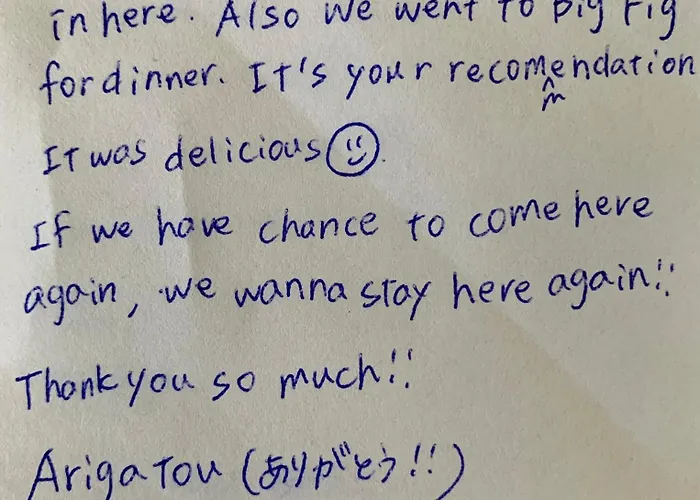 in here. Also we went to big Fig
for dinner. It's your recommendation
It was delicious☺.
If we have chance to come here
again, we wanna stay here again!!
Thank you so much!!
Arigatou (ありがとう!!)